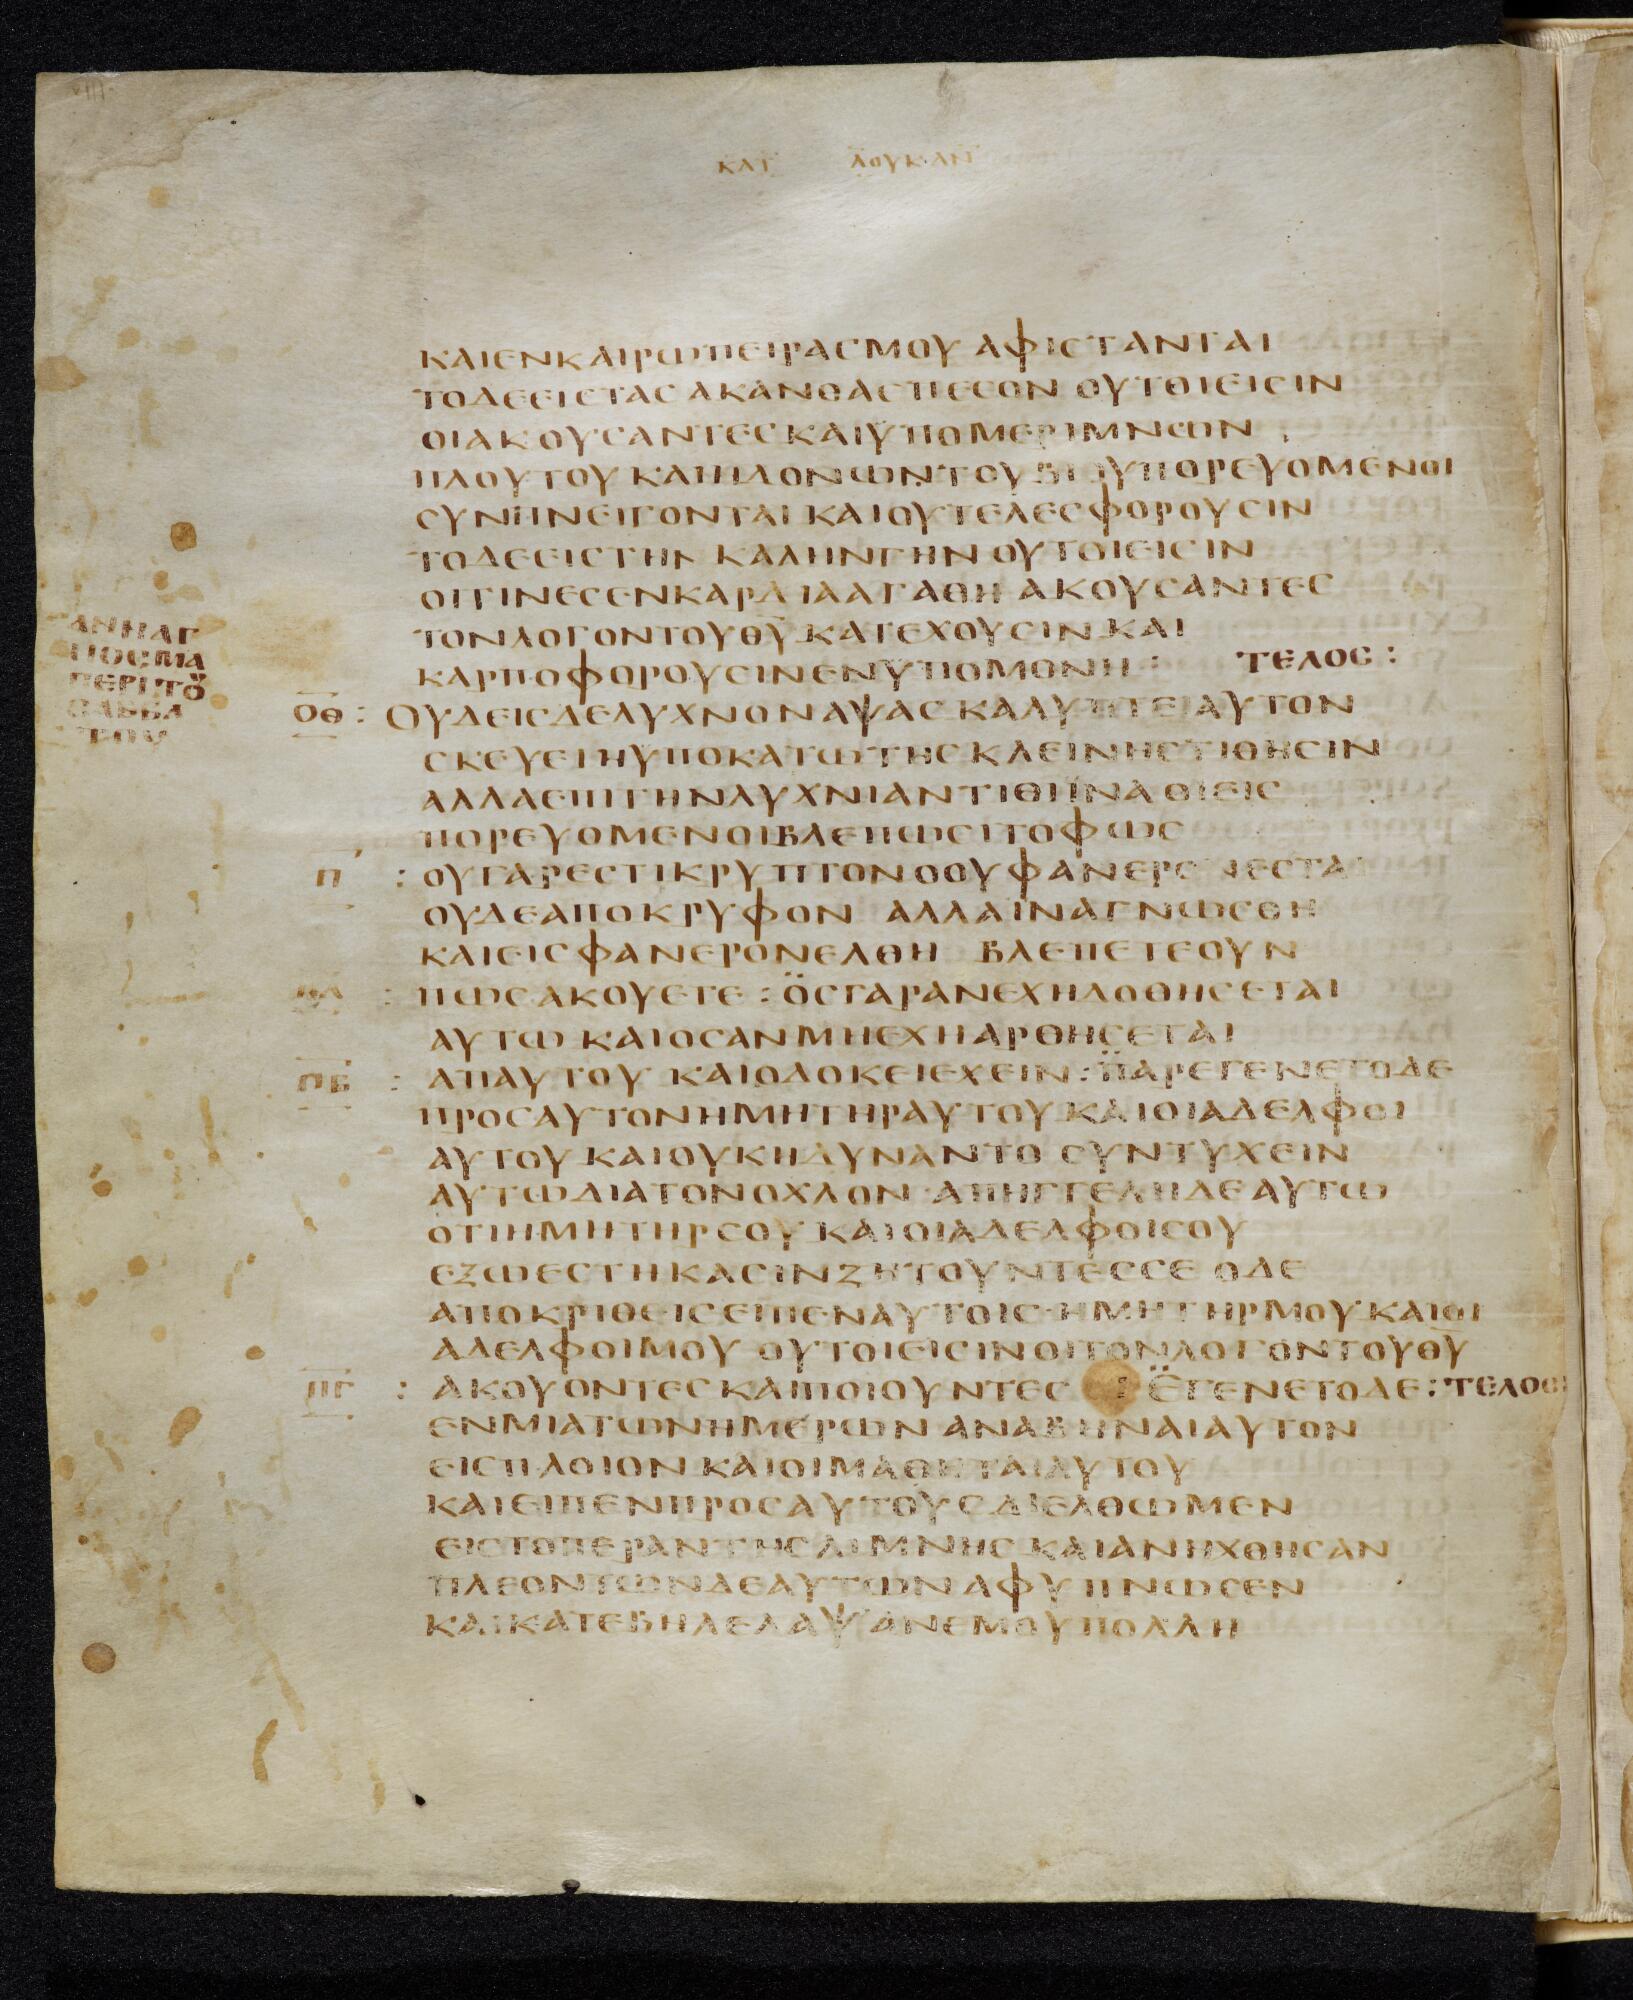 ΚΑΤ ΛΟΥΚΑΝ
ΚΑΙΕΝΚΑΙΡΩΠΕΙΡΑΣΜΟΥ ΑΦΙΣΤΑΝΤΑΙ
ΤΟΔΕΕΙΣΤΑΣ ΑΚΑΝΘΑΣΠΕΣΟΝ ΟΥΤΟΙΕΙΣΙΝ
ΟΙΑΚΟΥΣΑΝΤΕΣ ΚΑΙΫΠΟΜΕΡΙΜΝΩΝ
ΠΛΟΥΤΟΥ ΚΑΙΗΔΟΝΩΝΤΟΥΒΙΟΥΠΟΡΕΥΟΜΕΝΟΙ
ΣΥΝΠΝΕΙΓΟΝΤΑΙ ΚΑΙΟΥΤΕΛΕΣΦΟΡΟΥΣΙΝ
ΤΟΔΕΕΙΣΤΗΝ ΚΑΛΗΝΓΗΝ ΟΥΤΟΙΕΙΣΙΝ
ΟΙΤΙΝΕΣΕΝΚΑΡΔΙΑΑΓΑΘΗ ΑΚΟΥΣΑΝΤΕΣ
ΤΟΝΛΟΓΟΝΤΟΥΘΥ ΚΑΤΕΧΟΥΣΙΝ ΚΑΙ
ΚΑΡΠΟΦΟΡΟΥΣΙΝΕΝΫΠΟΜΟΝΗ : ΤΕΛΟΣ :
ΑΝΗΑΓ
ΠΟΣΜΑ
ΠΕΡΙΤΟΥ
ΣΑΒΒΑ
ΤΟΥ
ΟΘ : ΟΥΔΕΙΣΔΕΛΥΧΝΟΝΑΨΑΣ ΚΑΛΥΠΤΕΙΑΥΤΟΝ
ΣΚΕΥΕΙΗΫΠΟΚΑΤΩΤΗΣΚΛΕΙΝΗΣΤΙΘΗΣΙΝ
ΑΛΛΑΕΠΙΤΗΝΛΥΧΝΙΑΝΤΙΘΗΪΝΑΟΙΕΙΣ
ΠΟΡΕΥΟΜΕΝΟΙΒΛΕΠΩΣΙΤΟΦΩΣ
Π : ΟΥΓΑΡΕΣΤΙΚΡΥΠΤΟΝΟΟΥΦΑΝΕΡΟΝΕΣΤΑΙ
ΟΥΔΕΑΠΟΚΡΥΦΟΝ ΑΛΛΑΪΝΑΓΝΩΣΘΗ
ΚΑΙΕΙΣΦΑΝΕΡΟΝΕΛΘΗ ΒΛΕΠΕΤΕΟΥΝ
ΠΑ : ΠΩΣΑΚΟΥΕΤΕ : ΟΣΓΑΡΑΝΕΧΗΔΟΘΗΣΕΤΑΙ
ΑΥΤΩ ΚΑΙΟΣΑΝΜΗΕΧΗΑΡΘΗΣΕΤΑΙ
ΠΒ : ΑΠΑΥΤΟΥ ΚΑΙΟΔΟΚΕΙΕΧΕΙΝ : ΠΑΡΕΓΕΝΕΤΟΔΕ
ΠΡΟΣΑΥΤΟΝΗΜΗΤΗΡΑΥΤΟΥ ΚΑΙΟΙΑΔΕΛΦΟΙ
ΑΥΤΟΥ ΚΑΙΟΥΚΗΔΥΝΑΝΤΟ ΣΥΝΤΥΧΕΙΝ
ΑΥΤΩΔΙΑΤΟΝΟΧΛΟΝ ΑΠΗΓΓΕΛΗΔΕΑΥΤΩ
ΟΤΙΗΜΗΤΗΡΣΟΥ ΚΑΙΟΙΑΔΕΛΦΟΙΣΟΥ
ΕΞΩΕΣΤΗΚΑΣΙΝΖΗΤΟΥΝΤΕΣΣΕ ΟΔΕ
ΑΠΟΚΡΙΘΕΙΣΕΙΠΕΝΑΥΤΟΙΣ ΗΜΗΤΗΡΜΟΥ ΚΑΙΟΙ
ΑΔΕΛΦΟΙΜΟΥ ΟΥΤΟΙΕΙΣΙΝΟΙΤΟΝΛΟΓΟΝΤΟΥΘΥ
ΠΓ : ΑΚΟΥΟΝΤΕΣΚΑΙΠΟΙΟΥΝΤΕΣ : ΕΓΕΝΕΤΟΔΕ : ΤΕΛΟΣ
ΕΝΜΙΑΤΩΝΗΜΕΡΩΝ ΑΝΑΒΗΝΑΙΑΥΤΟΝ
ΕΙΣΠΛΟΙΟΝ ΚΑΙΟΙΜΑΘΗΤΑΙΑΥΤΟΥ
ΚΑΙΕΙΠΕΝΠΡΟΣΑΥΤΟΥΣΔΙΕΛΘΩΜΕΝ
ΕΙΣΤΟΠΕΡΑΝΤΗΣΛΙΜΝΗΣ ΚΑΙΑΝΗΧΘΗΣΑΝ
ΠΛΕΟΝΤΩΝΔΕΑΥΤΩΝ ΑΦΥΠΝΩΣΕΝ
ΚΑΙΚΑΤΕΒΗΛΕΛΑΨ ΑΝΕΜΟΥΠΟΛΛΗ